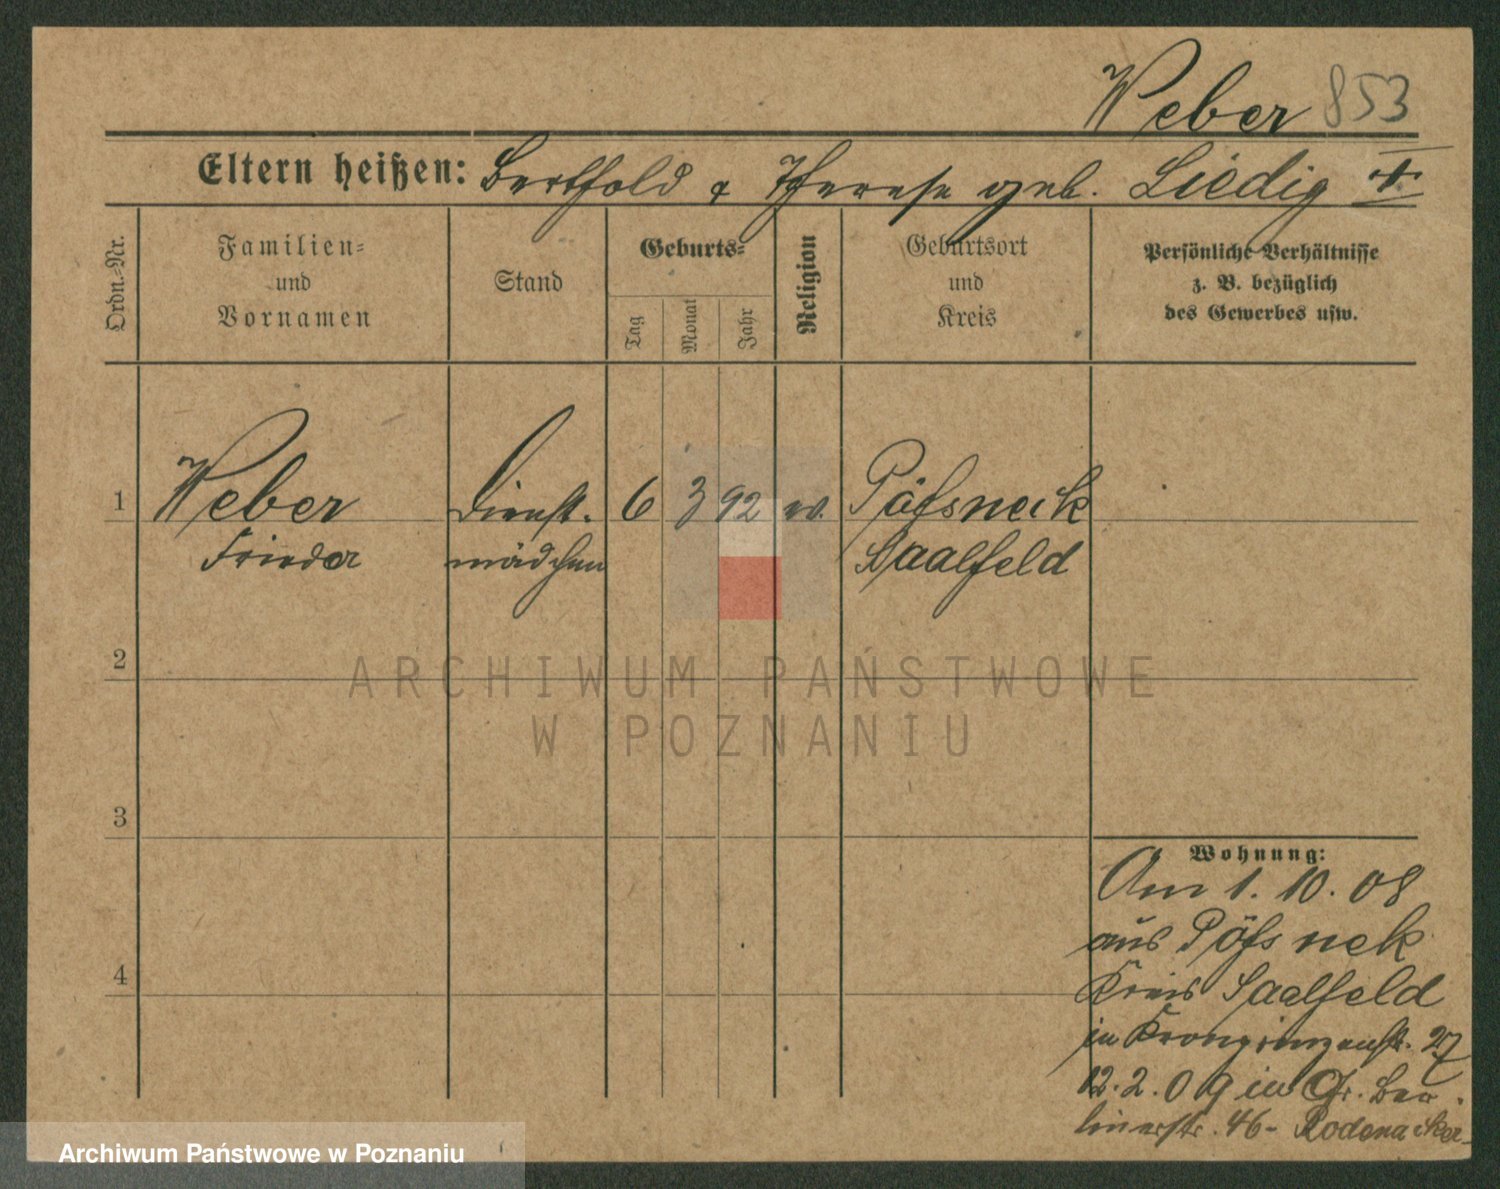 Weber 853
Eltern heißen: Berthold & Therese geb. Liedig
Ordn.-Nr.
Familien-
und
Vornamen
Stand
Geburts-
Tag
Monat
Jahr
Religion
Geburtsort
und
Kreis
Persönliche Verhältnisse
z. B. bezüglich
des Gewerbes usw.
1 Weber Dienst- 6 3 92 ev. Pößneck
Frieda mädchen Saalfeld
2
3
4
Wohnung:
Am 1. 10. 08
aus Pößneck
Kreis Saalfeld
in Kronprinzenstr. 27
12. 2. 09 in Gr. Ber-
linerstr. 46 - Rodenacker
ARCHIWUM PAŃSTWOWE
W POZNANIU
Archiwum Państwowe w Poznaniu